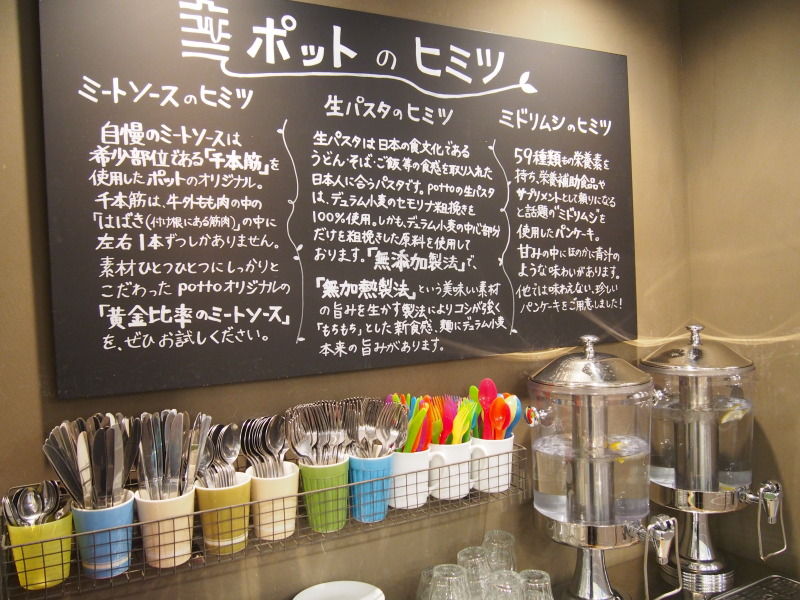 ポットのヒミツ
ミートソースのヒミツ
自慢のミートソースは
希少部位である「千本筋」を
使用したポットのオリジナル。
千本筋は、牛外もも肉の中の
「はばき(付け根にある筋肉)の中に
左右1本ずつしかありません。
素材ひとつひとつにしっかりと
こだわったpottoオリジナルの
「黄金比率のミートソース」
を、ぜひお試しください。
生パスタのヒミツ
生パスタは日本の食文化である
うどん・そば・ご飯等の食感を取り入れた
日本人に合うパスタです。pottoの生パスタ
は、デュラム小麦のセモリナ粗挽きを
100%使用。しかも、デュラム小麦の中心部分
だけを粗挽きした原料を使用して
おります。「無添加製法」で、
「無加熱製法」という美味しい素材
の旨みを生かす製法によりコシが強く
「もちもち」とした新食感、麺にデュラム小麦
本来の旨みがあります。
ミドリムシのヒミツ
59種類もの栄養素を
持ち、栄養補助食品や
サプリメントとして頼りになる
と話題の"ミドリムシ"を
使用したパンケーキ。
甘みの中にほのかに青汁の
ような味わいがあります。
他では味わえない、珍しい
パンケーキをご用意しました!